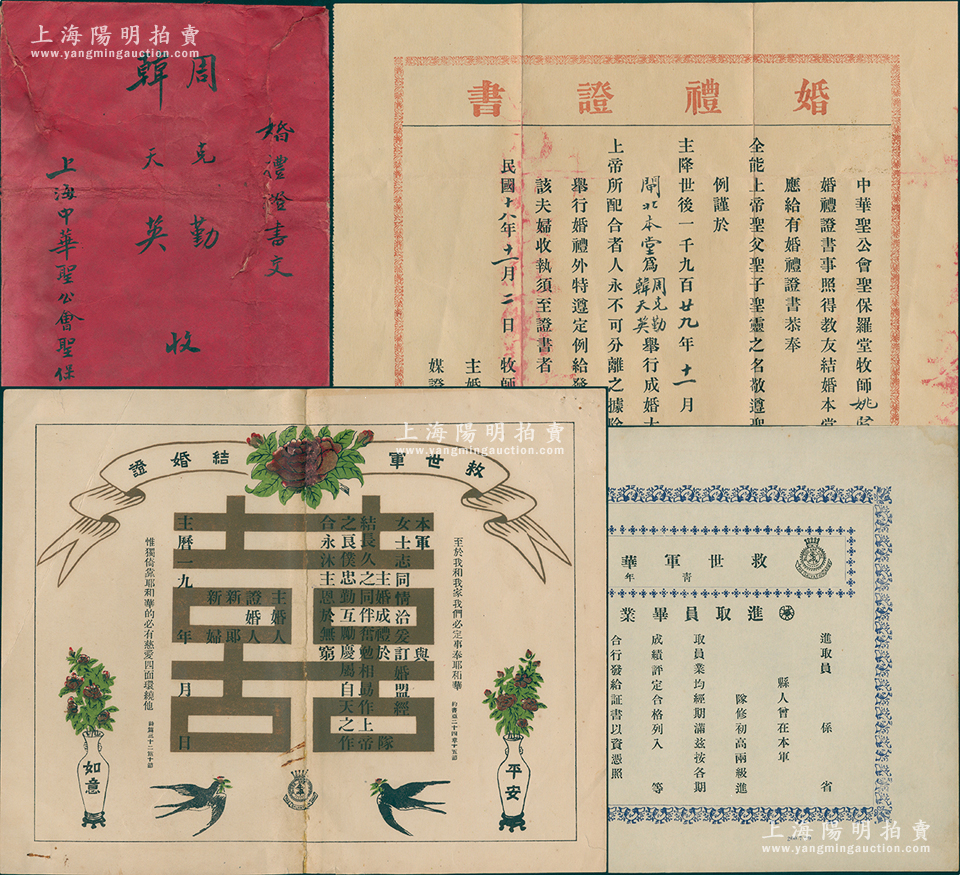 上海陽明拍賣
www.yangmingauction.com
婚禮證書文
周克勤
韓天英 收
上海中華聖公會聖保
上海陽明拍賣
www.yangmingauction.com
婚禮證書
中華聖公會聖保羅堂牧師姚
婚禮證書事照得教友結婚本堂
應給有婚禮證書恭奉
全能上帝聖父聖子聖靈之名敬遵聖
例謹於
主降世後一千九百廿九年十一月
閘北本堂爲周克勤韓天英舉行成婚大
上帝所配合者人永不可分離之據除
舉行婚禮外特遵定例給發
該夫婦收執須至證書者
民國十八年十一月二日
牧師
主婚
媒證
上海陽明拍賣
www.yangmingauction.com
救世軍結婚證
至於我和我家我們必定事奉耶和華
約書亞二十四章十五節
本軍 與
女士志同情洽爰訂婚盟經 隊
主婚成禮於 上帝
結長久之同伴奮勉相勗作
之良僕忠勤互勵慶屬自天之作
合永沐主恩於無窮
主婚人
證婚人
新耶
新婦
主曆一九 年 月 日
惟獨倚靠耶和華的必有慈愛四面環繞他
詩篇三十二篇十節
如意
平安
救世軍華
青年
進取員畢業
進取員 係 省
縣人曾在本軍
隊修初高兩級進
取員業均經期滿茲按各期
成績評定合格列入 等
合行發給証書以資憑照
上海陽明拍賣
www.yangmingauction.com